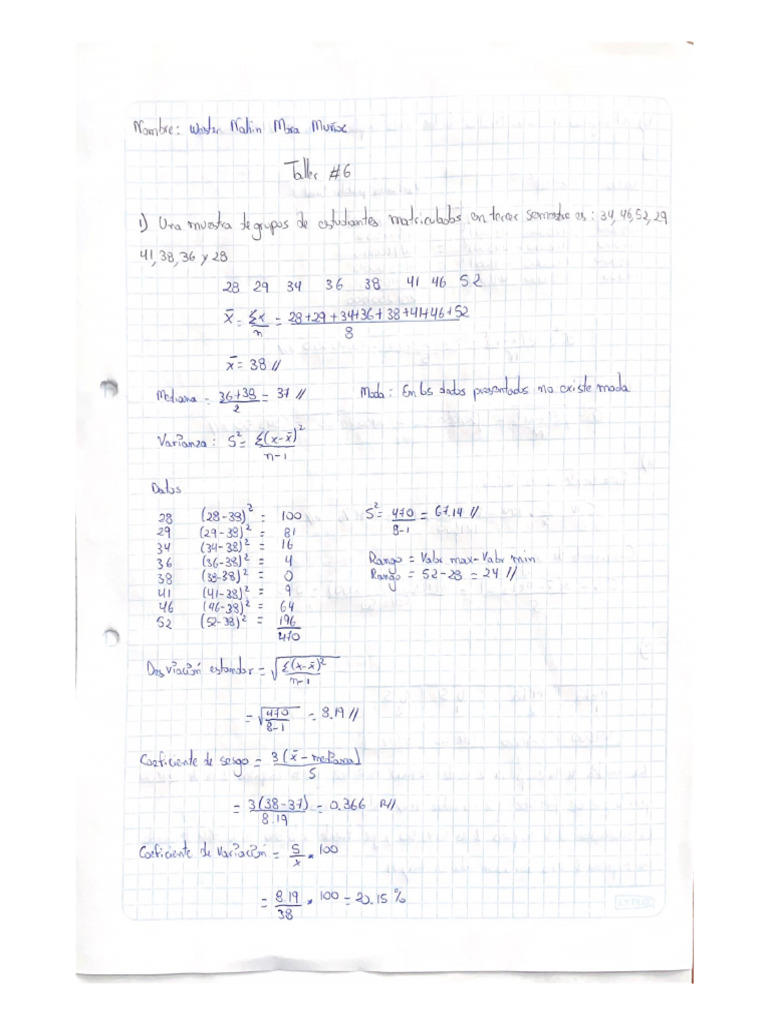 Nombre: Wister Nahin Mora Muñoz
Taller #6
1) Una muestra de grupos de estudiantes matriculados en tercer semestre es: 34, 46, 52, 29
41, 38, 36 y 28
28 29 34 36 38 41 46 52
x̄ = Σx/n = (28+29+34+36+38+41+46+52)/8
x̄ = 38 //
Mediana = (36+38)/2 = 37 // Moda: En los datos presentados no existe moda
Varianza: S² = Σ(x-x̄)²/(n-1)
Datos
28 (28-38)² = 100 S² = 470/(8-1) = 67.14 //
29 (29-38)² = 81
34 (34-38)² = 16
36 (36-38)² = 4 Rango = Valor max - Valor min
38 (38-38)² = 0 Rango = 52-28 = 24 //
41 (41-38)² = 9
46 (46-38)² = 64
52 (52-38)² = 196
470
Desviación estandar = √(Σ(x-x̄)²/(n-1))
= √(470/(8-1)) = 8.19 //
Coeficiente de sesgo = 3(x̄ - mediana)/S
= 3(38-37)/8.19 = 0.366 R//
Coeficiente de Variación = S/x * 100
= 8.19/38 * 100 = 20.15 %